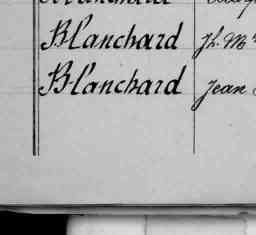 Blanchard Jh. M
Blanchard Jean